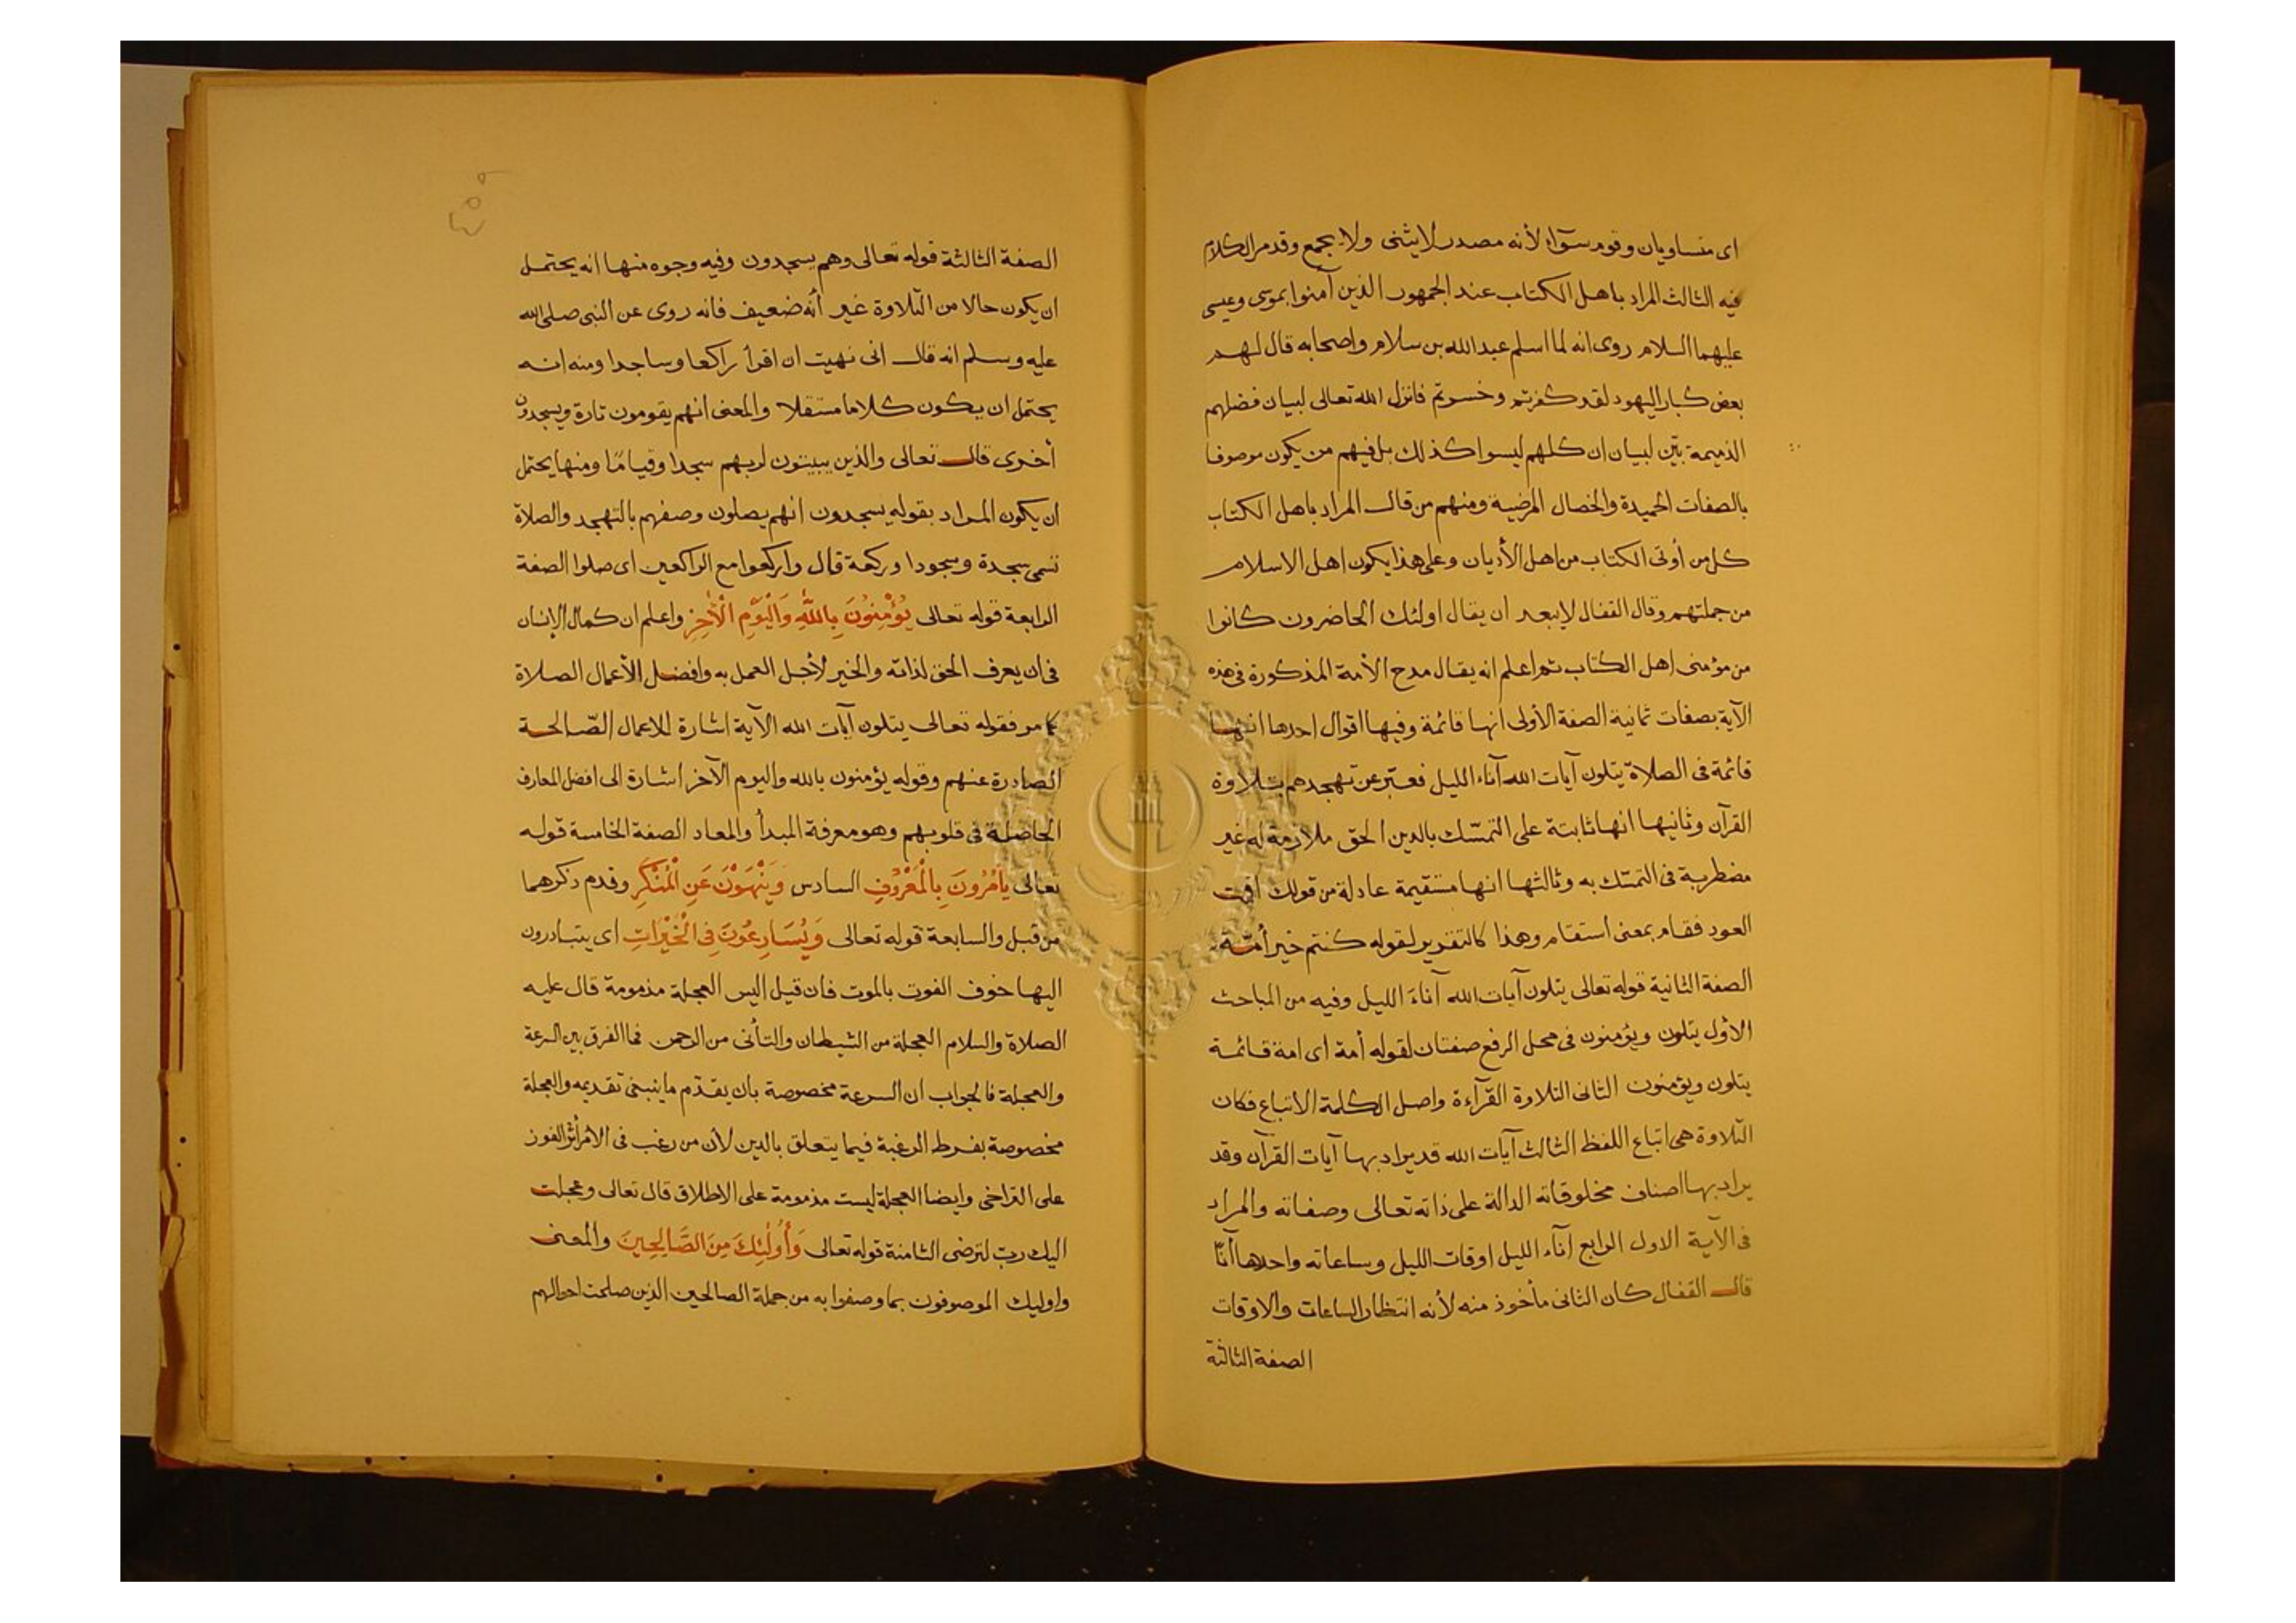 اى متساويان وقوم سوآء لأنه مصدر لا يثنى ولا يجمع وقد مر الكلام
فيه الثالث المراد باهل الكتاب عند الجمهور الذين آمنوا بموسى وعيسى
عليهما السلام روى انه لما اسلم عبد الله بن سلام واصحابه قال لهم
بعض كبار اليهود لقد كفرتم وخسرتم فانزل الله تعالى لبيان فضلهم
الذميمة بيّن لبيان ان كلهم ليسوا كذلك بل فيهم من يكون موصوفا
بالصفات الحميدة والخصال المرضية ومنهم من قال المراد باهل الكتاب
كل من أوتى الكتاب من اهل الأديان وعلى هذا يكون اهل الاسلام
من جملتهم وقال القفال لا يبعد ان يقال اولئك الحاضرون كانوا
من مؤمنى اهل الكتاب ثم اعلم انه يقال مدح الأمة المذكورة فى هذه
الآية بصفات ثمانية الصفة الأولى انها قائمة وفيها اقوال احدها انها
قائمة فى الصلاة يتلون آيات الله آناء الليل فعبّر عن تهجدهم بتلاوة
القرآن وثانيها انها ثابتة على التمسّك بالدين الحق ملازمة له غير
مضطربة فى التمسّك به وثالثها انها مستقيمة عادلة من قولك اقمت
العود فقام بمعنى استقام وهذا كالتقرير لقوله كنتم خير أمّة
الصفة الثانية قوله تعالى يتلون آيات الله آناءَ الليل وفيه من المباحث
الاول يتلون ويؤمنون فى محل الرفع صفتان لقوله أمة اى امة قائمة
يتلون ويؤمنون الثانى التلاوة القرآءة واصل الكلمة الاتباع فكان
التلاوة هى اتباع اللفظ الثالث آيات الله قد يراد بها آيات القرآن وقد
يراد بها اصناف مخلوقاته الدالة على ذاته تعالى وصفاته والمراد
فى الآية الاول الرابع آناء الليل اوقات الليل وساعاته واحدها آنًا
قال القفال كان الثانى مأخوذ منه لأنه انتظار الساعات والاوقات
الصفة الثالثة
الصفة الثالثة قوله تعالى وهم يسجدون وفيه وجوه منها انه يحتمل
ان يكون حالا من التلاوة غير أنه ضعيف فانه روى عن النبى صلى الله
عليه وسلم انه قال انى نهيت ان اقرأ راكعا وساجدا ومنه انه
يحتمل ان يكون كلاما مستقلا والمعنى انهم يقومون تارة ويسجدون
أخرى قال تعالى والذين يبيتون لربهم سجدا وقيامًا ومنها يحتمل
ان يكون المراد بقوله يسجدون انهم يصلون وصفهم بالتهجد والصلاة
تسمى سجدة وسجودا وركعة قال واركعوا مع الراكعين اى صلوا الصفة
الرابعة قوله تعالى يُؤْمِنُونَ بِاللَّهِ وَالْيَوْمِ الْآخِرِ واعلم ان كمال الإنسان
فى ان يعرف الحق لذاته والخير لأجل العمل به وافضل الأعمال الصلاة
كما مر فقوله تعالى يتلون آيات الله الآية اشارة للاعمال الصّالحة
الصادرة عنهم وقوله يؤمنون بالله واليوم الآخر اشارة الى افضل المعارف
الحاصلة فى قلوبهم وهو معرفة المبدأ والمعاد الصفة الخامسة قوله
تعالى يَأْمُرُونَ بِالْمَعْرُوفِ السادس وَيَنْهَوْنَ عَنِ الْمُنْكَرِ وقدم ذكرهما
من قبل والسابعة قوله تعالى وَيُسَارِعُونَ فِى الْخَيْرَاتِ اى يتبادرون
اليها خوف الفوت بالموت فان قيل اليس العجلة مذمومة قال عليه
الصلاة والسلام العجلة من الشيطان والتأنى من الرحمن فما الفرق بين السرعة
والعجلة فالجواب ان السرعة مخصوصة بان يقدّم ما ينبغى تقديمه والعجلة
مخصوصة بفرط الرغبة فيما يتعلق بالدين لأن من رغب فى الأمر آثر الفوز
على التراخى وايضا العجلة ليست مذمومة على الاطلاق قال تعالى وعجلت
اليك ربّ لترضى الثامنة قوله تعالى وَأُولَٰئِكَ مِنَ الصَّالِحِينَ والمعنى
واوليك الموصوفون بما وصفوا به من جملة الصالحين الذين صلحت احوالهم